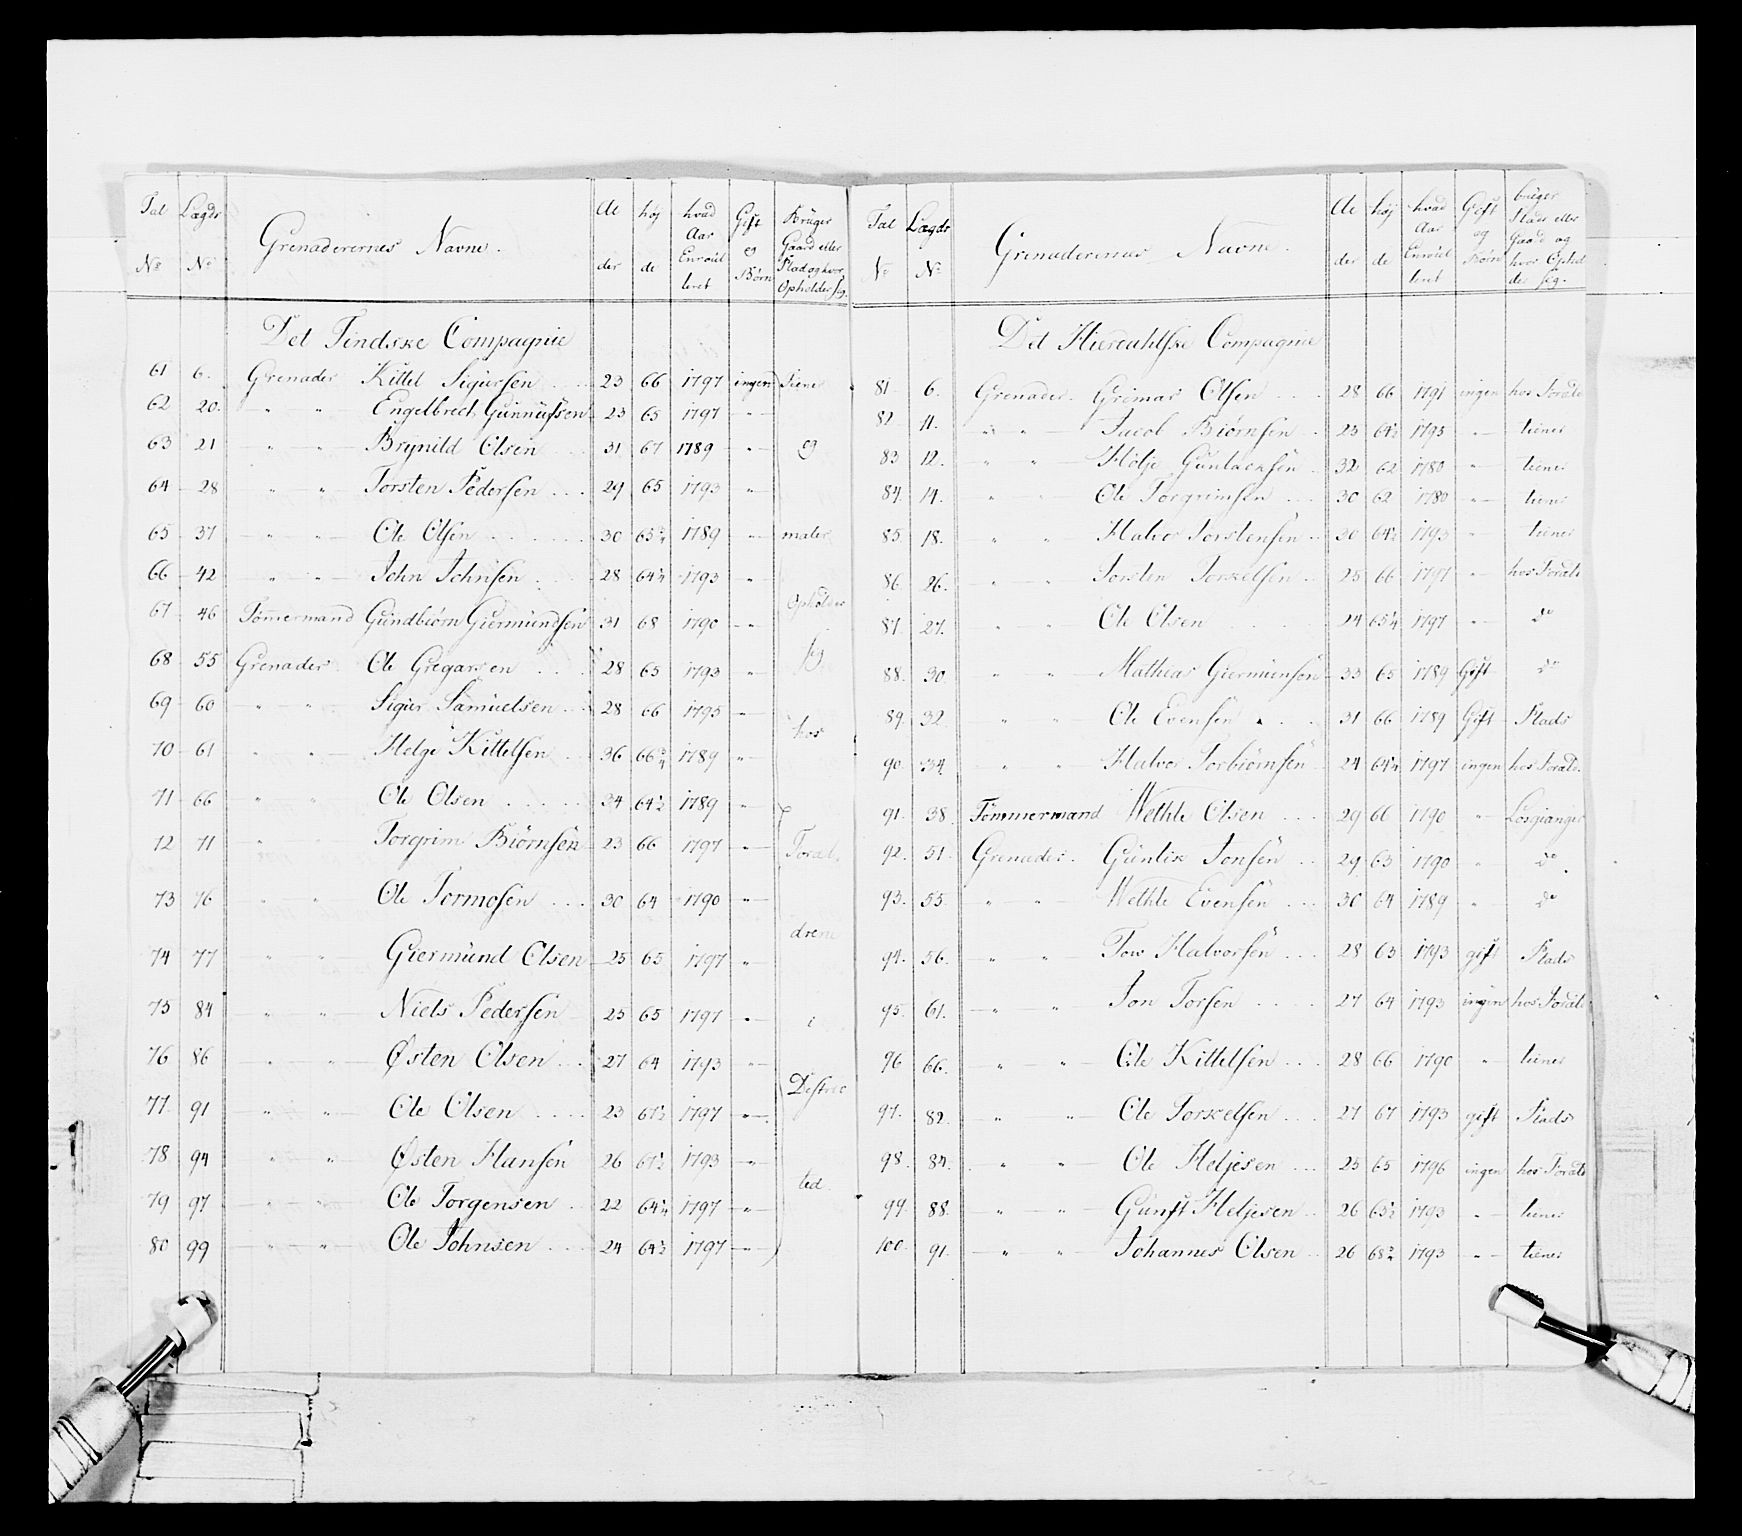 Tal Lægds Grenaderernes Navne. Al høj hvad Gift Brüger
Aar og Gaard eller
No No der de Enroul Børn Stad og hvor
leret Opholder sig.
Det Tindske Compagnie
61 6. Grenader Kittel Sigursen 23 66 1797 ingen Tiener
62 20. " " Engelbrect Gunnulfsen 23 65 1797 "
63 21 " " Brynild Olsen 31 67 1789 " og
64 28 " " Torsten Pedersen 29 65 1793 "
65 37 " " Ole Olsen 30 65¾ 1789 "
66 42 " " John Johnsen 28 64¼ 1793 "
67 46 Tömmermand Gundbiörn Giermundsen 31 68 1790 " Opholder
68 55 Grenader Ole Gregarsen 28 65 1793 " sig
69 60 " " Sigur Samuelsen 28 66 1795 " hos
70 61 " " Helge Kittelsen 36 66¾ 1789 "
71 66 " " Ole Olsen 34 64½ 1789 "
72 71 " " Torgrim Biörnsen 23 66 1797 " Foræl,
73 76 " " Ole Tormosen 30 64 1790 "
drene
74 77 " " Giermund Olsen 25 65 1797 "
75 84 " " Niels Pedersen 25 65 1797 " i
76 86 " " Østen Olsen 27 64 1793 "
Destric
77 91 " " Ole Olsen 23 67½ 1797 "
78 94 " " Østen Hansen 26 67½ 1793 "
ted.
79 97 " " Ole Torgensen 22 64¼ 1797 "
80 99 " " Ole Johnsen 24 64½ 1797 "
Tal Lægds Grenaderernes Navne. Al høj hvad Gift brüger
Aar og Stads eller
No No der de Enroul Børn Gaard og
leret hvor Ophol
der sig.
Det Hiereahlske Compagnie
81 6. Grenader Grimar Olsen 28 66 1791 ingen hos Foræle
82. 11. " " Jacob Biörnsen 25 64½ 1795 " tiener
83 12. " " Holje Guntaensen 32 62 1780 " tiener
84. 14. " " Ole Torgrimsen 30 62 1780 " tiener
85. 18. " " Halvor Torstensen 30 64½ 1793 " tiener
86. 26. " " Torsten Torkelsen 25 66 1797 " hos Foræle
87. 27. " " Ole Olsen 24 65¼ 1797 " do
88. 30. " " Mathias Giermunsen 33 65 1789 Gift do
89. 32. " " Ole Evensen 31 66 1789 Gift Stads
90. 34. " " Halvor Torbiörnsen 24 64¼ 1797 ingen hos Foræle.
91. 38. Tömmermand Wethle Olsen 29 66 1790 " Losgianger
92. 51. Grenader. Guntik Jonsen 29 63 1790 " do
93. 55. " " Wethle Evensen 30 64 1789 " do
94. 56. " " Tow Halvorsen 28 63 1793 gift Stads
95. 61. " " Jon Torsen 27 64 1793 ingen hos Foræle
96 66. " " Ole Kittelsen 28 66 1790 " tiener
97. 82. " " Ole Torkelsen 27 67 1793 gift Stads
98. 84. " " Ole Heljesen 25 65 1796 ingen hos Foræle
99. 88. " " Gunst Heljesen 26 65½ 1793 " tiener
100. 91. " " Johannes Olsen 26 68¾ 1793 " tiener